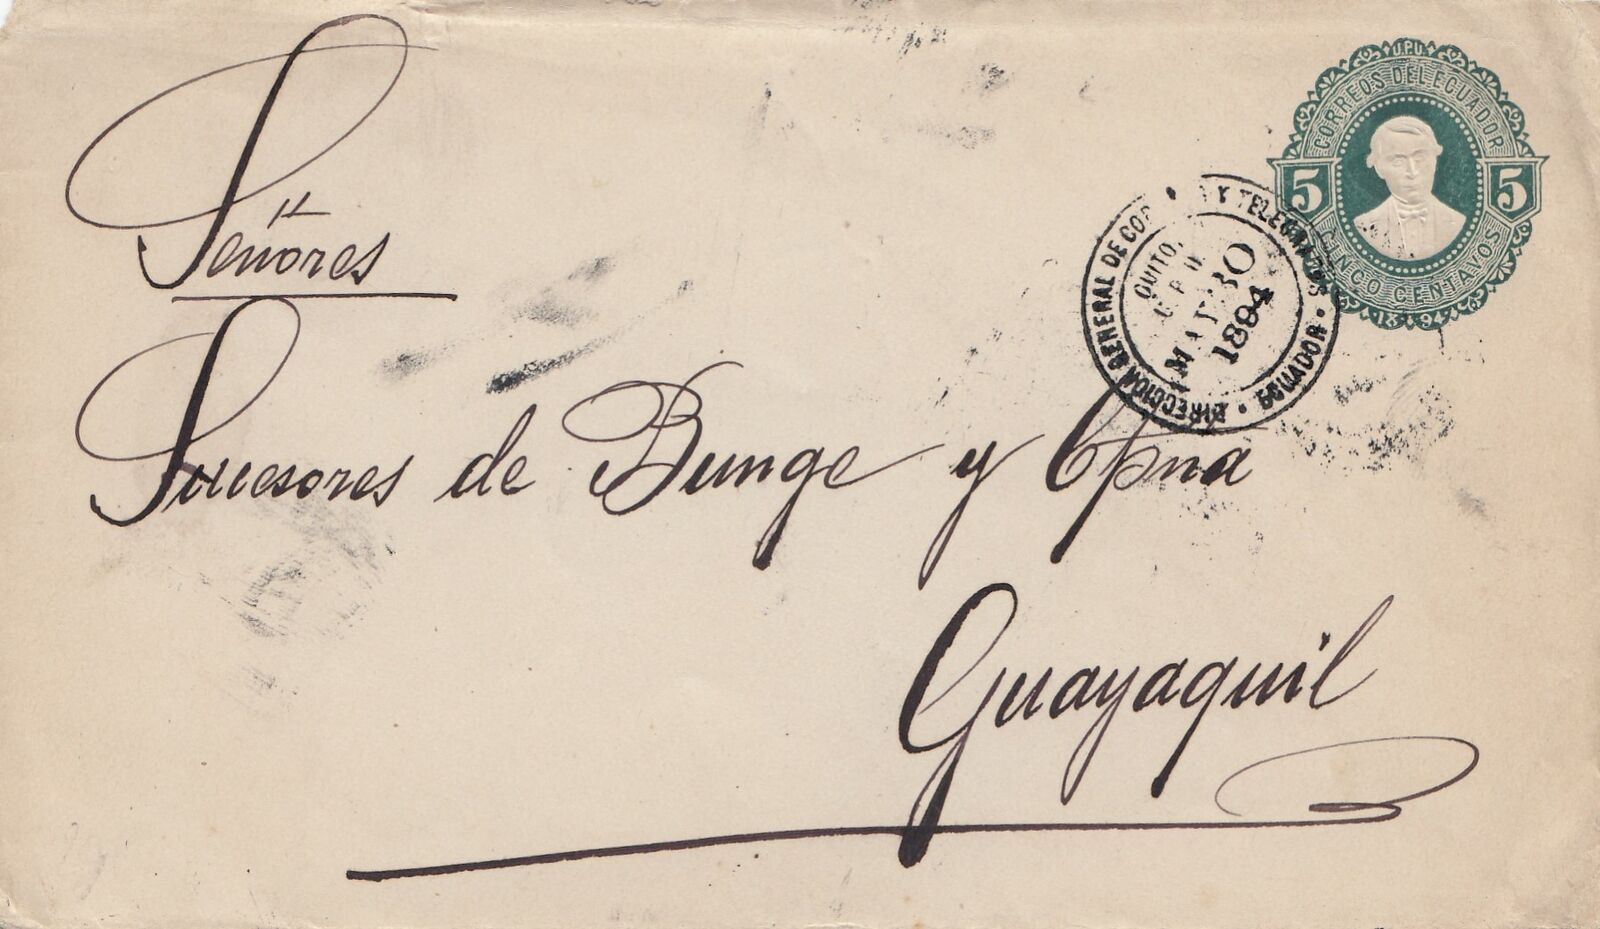 U.P.U.
CORREOS DEL ECUADOR
5 5
CINCO CENTAVOS
1894
DIRECCION GENERAL DE Y TELEGRAFOS
ECUADOR
QUITO.
30
1894
Señores
Sucesores de Bunge y Cpna
Guayaquil